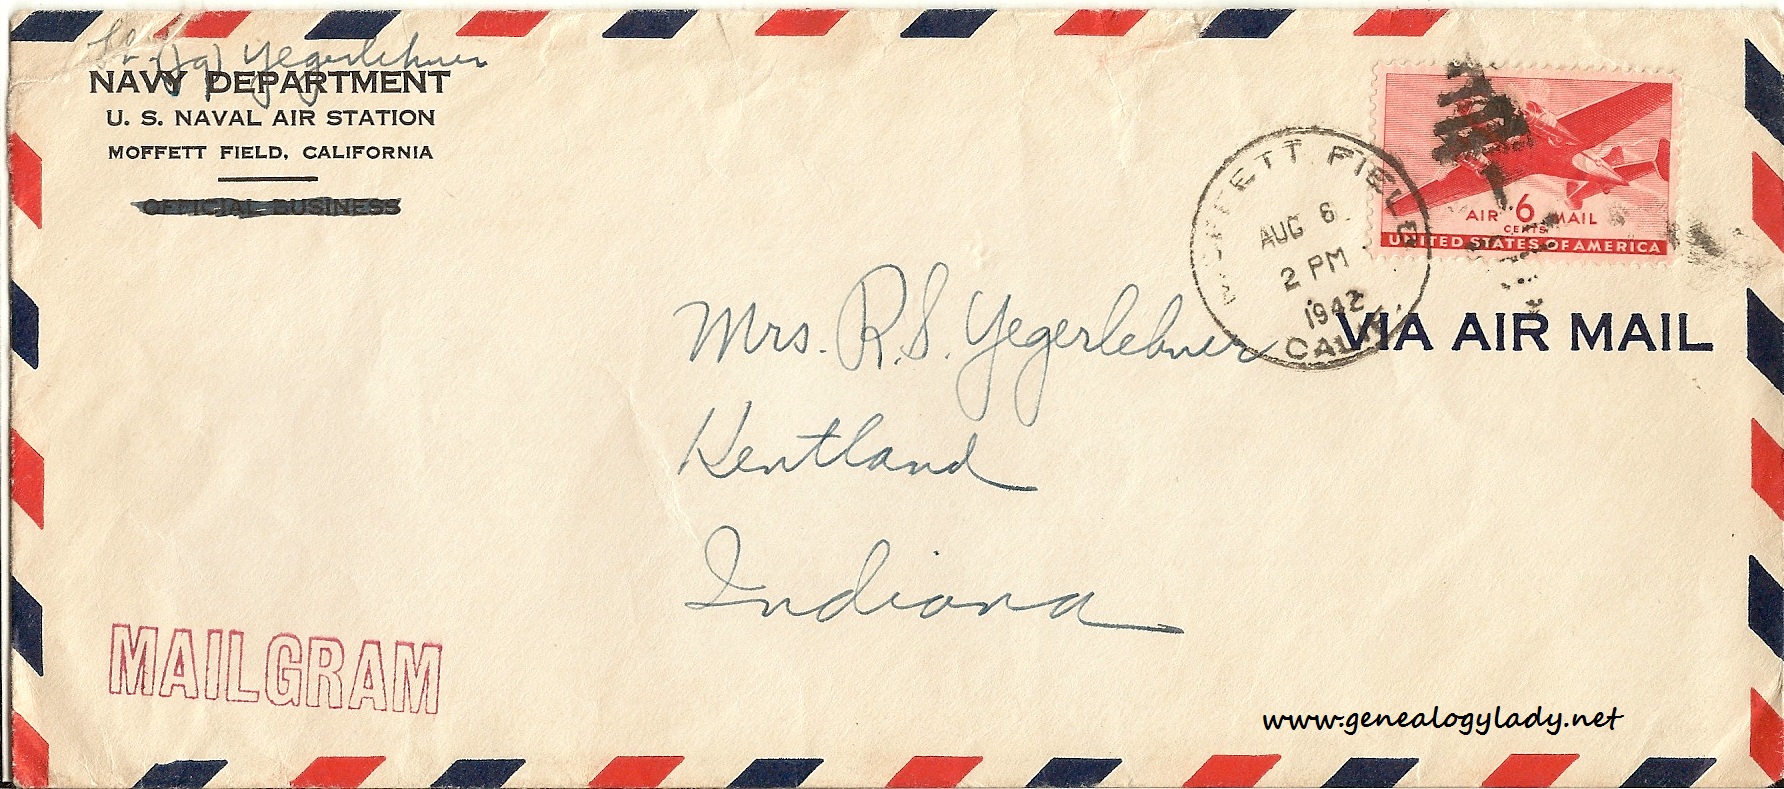 Lt. (jg) Yegerlehner
NAVY DEPARTMENT
U. S. NAVAL AIR STATION
MOFFETT FIELD, CALIFORNIA
OFFICIAL BUSINESS
MOFFETT FIELD
AUG 6
2 PM
1942
CALIF.
AIR 6 MAIL
CENTS
UNITED STATES OF AMERICA
VIA AIR MAIL
Mrs. R. S. Yegerlehner
Kentland
Indiana
MAILGRAM
www.genealogylady.net